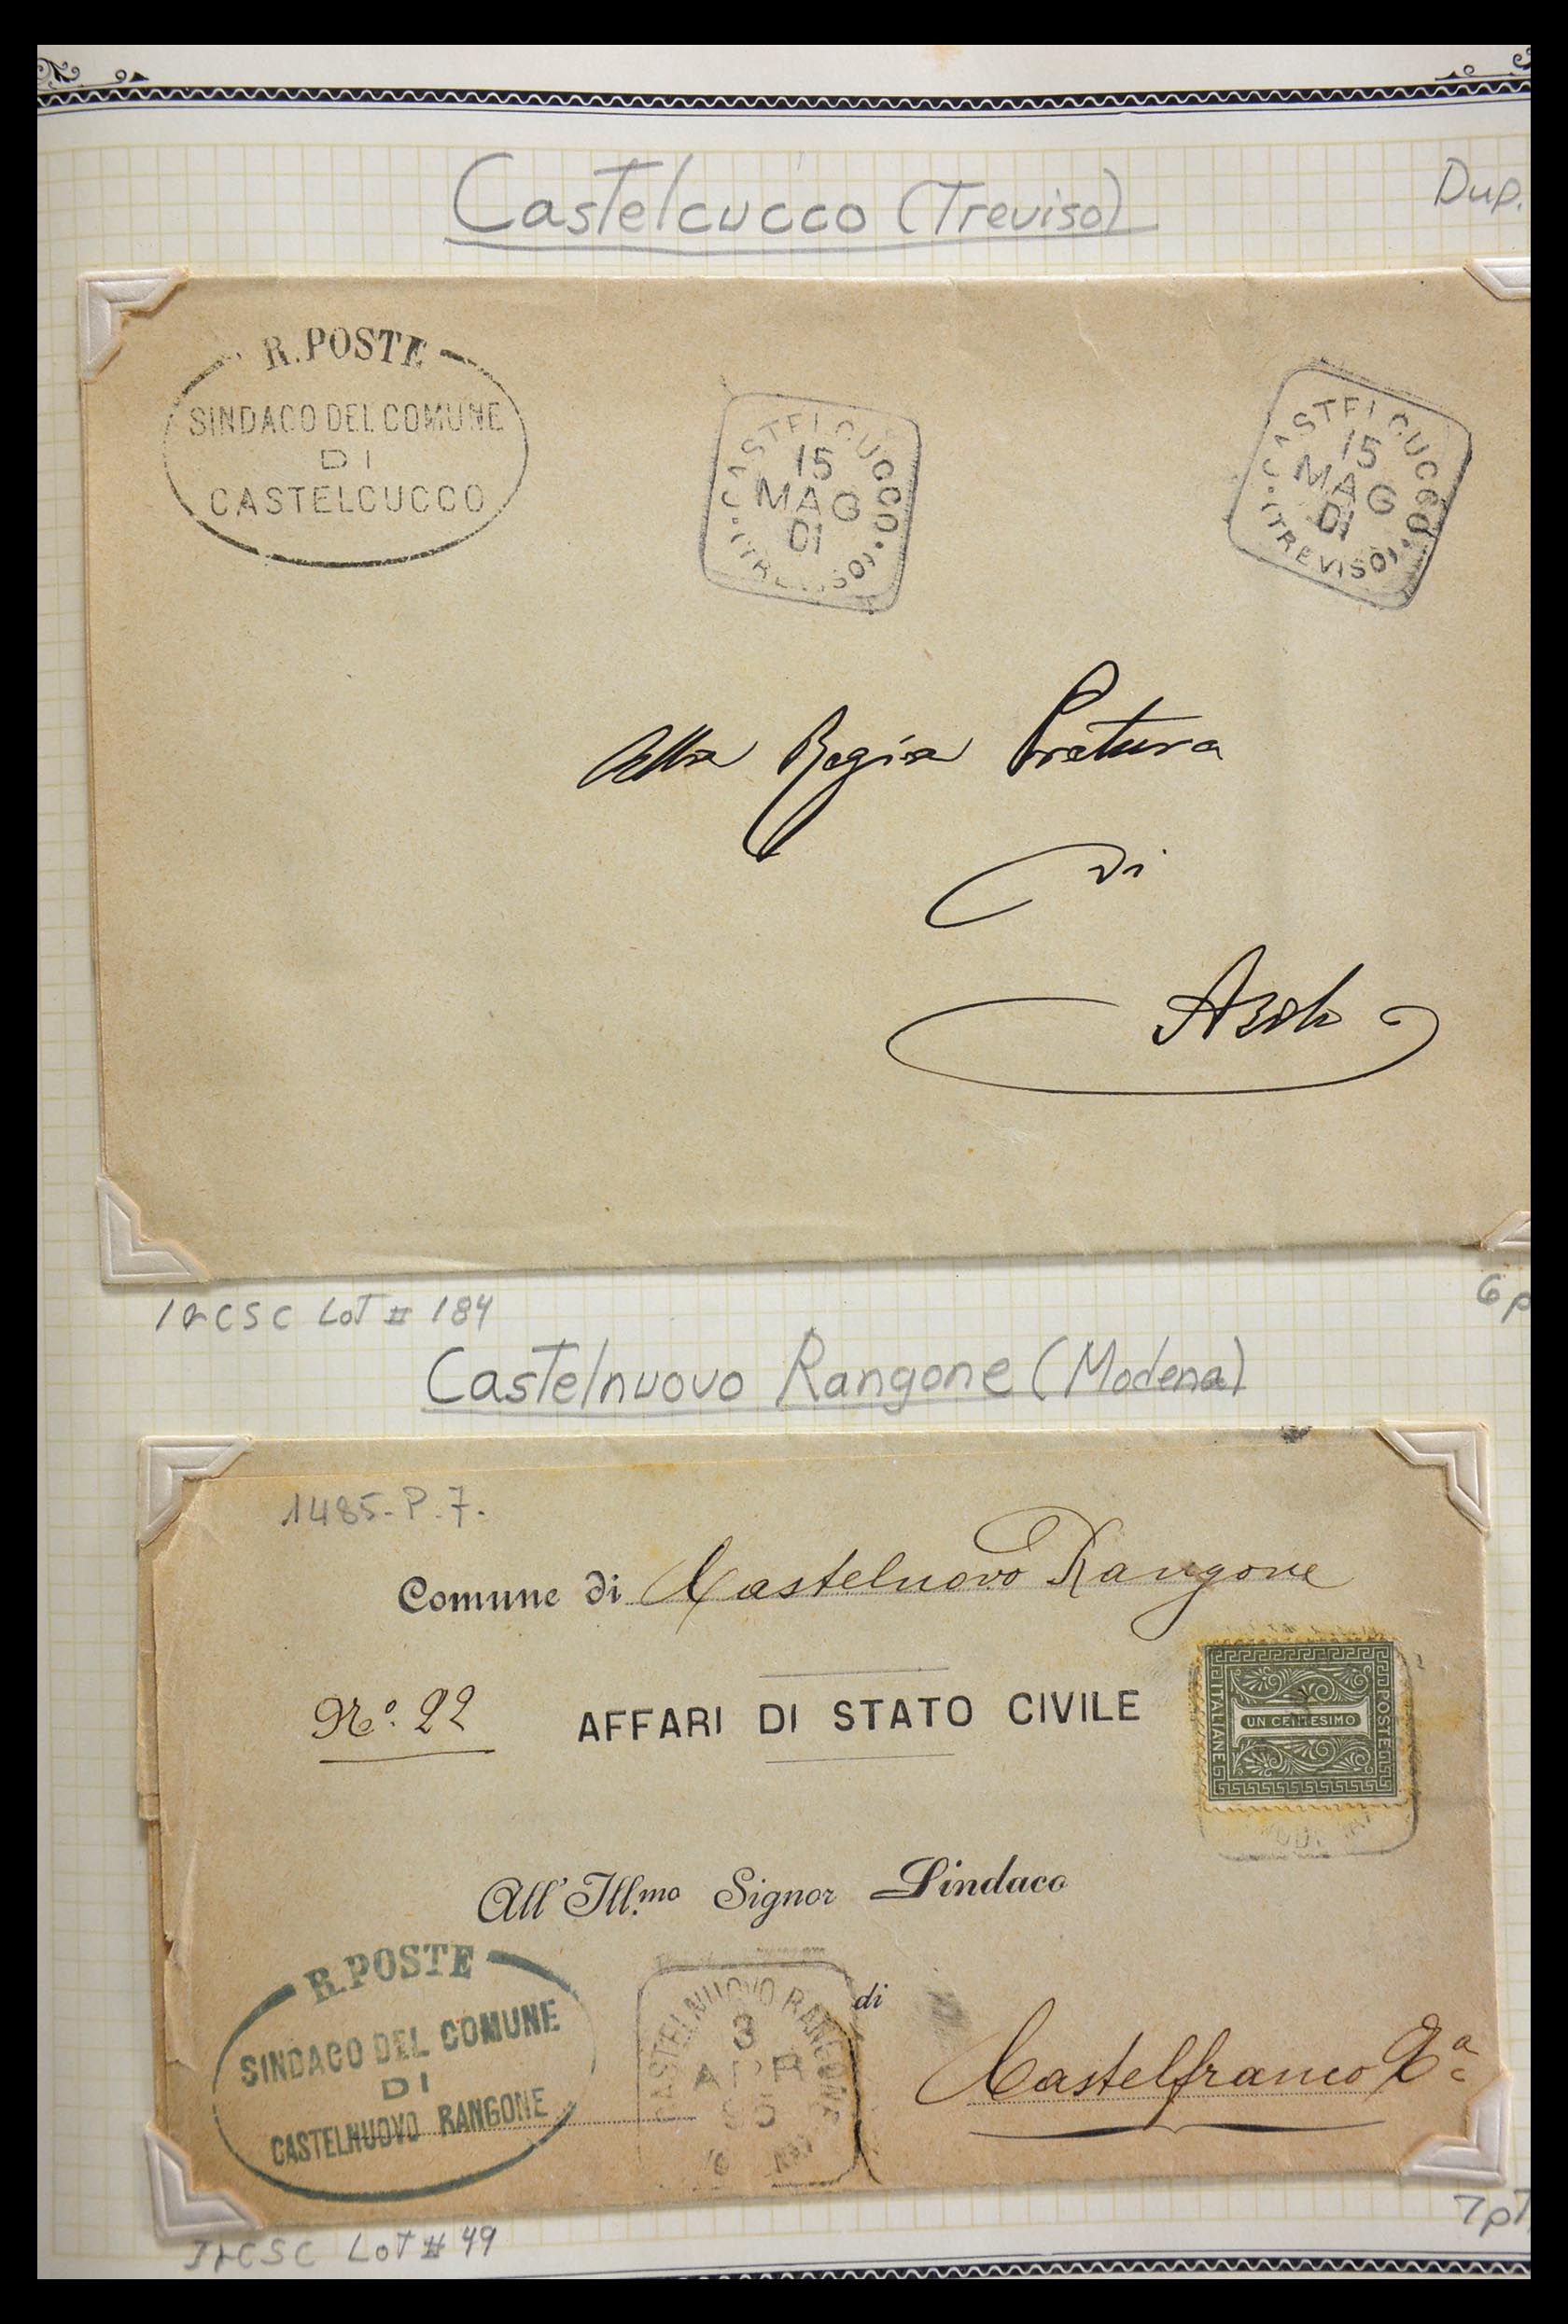 Castelcucco (Treviso)
Dup.
R. POSTE
SINDACO DEL COMUNE
DI
CASTELCUCCO
CASTELCUCCO
15
MAG
01
(TREVISO)
CASTELCUCCO
15
MAG
01
(TREVISO)
Alla Regia Pretura
di
Asolo
ItCSC Lot # 184
6 p
Castelnuovo Rangone (Modena)
1485-P.7.
Comune di Castelnuovo Rangone
POSTE
ITALIANE
UN CENTESIMO
No. 22
AFFARI DI STATO CIVILE
All' Ill.mo Signor Sindaco
R. POSTE
SINDACO DEL COMUNE
DI
CASTELNUOVO RANGONE
CASTELNUOVO RANGONE
3
APR
95
di
Castelfranco
ItCSC Lot # 49
7pt